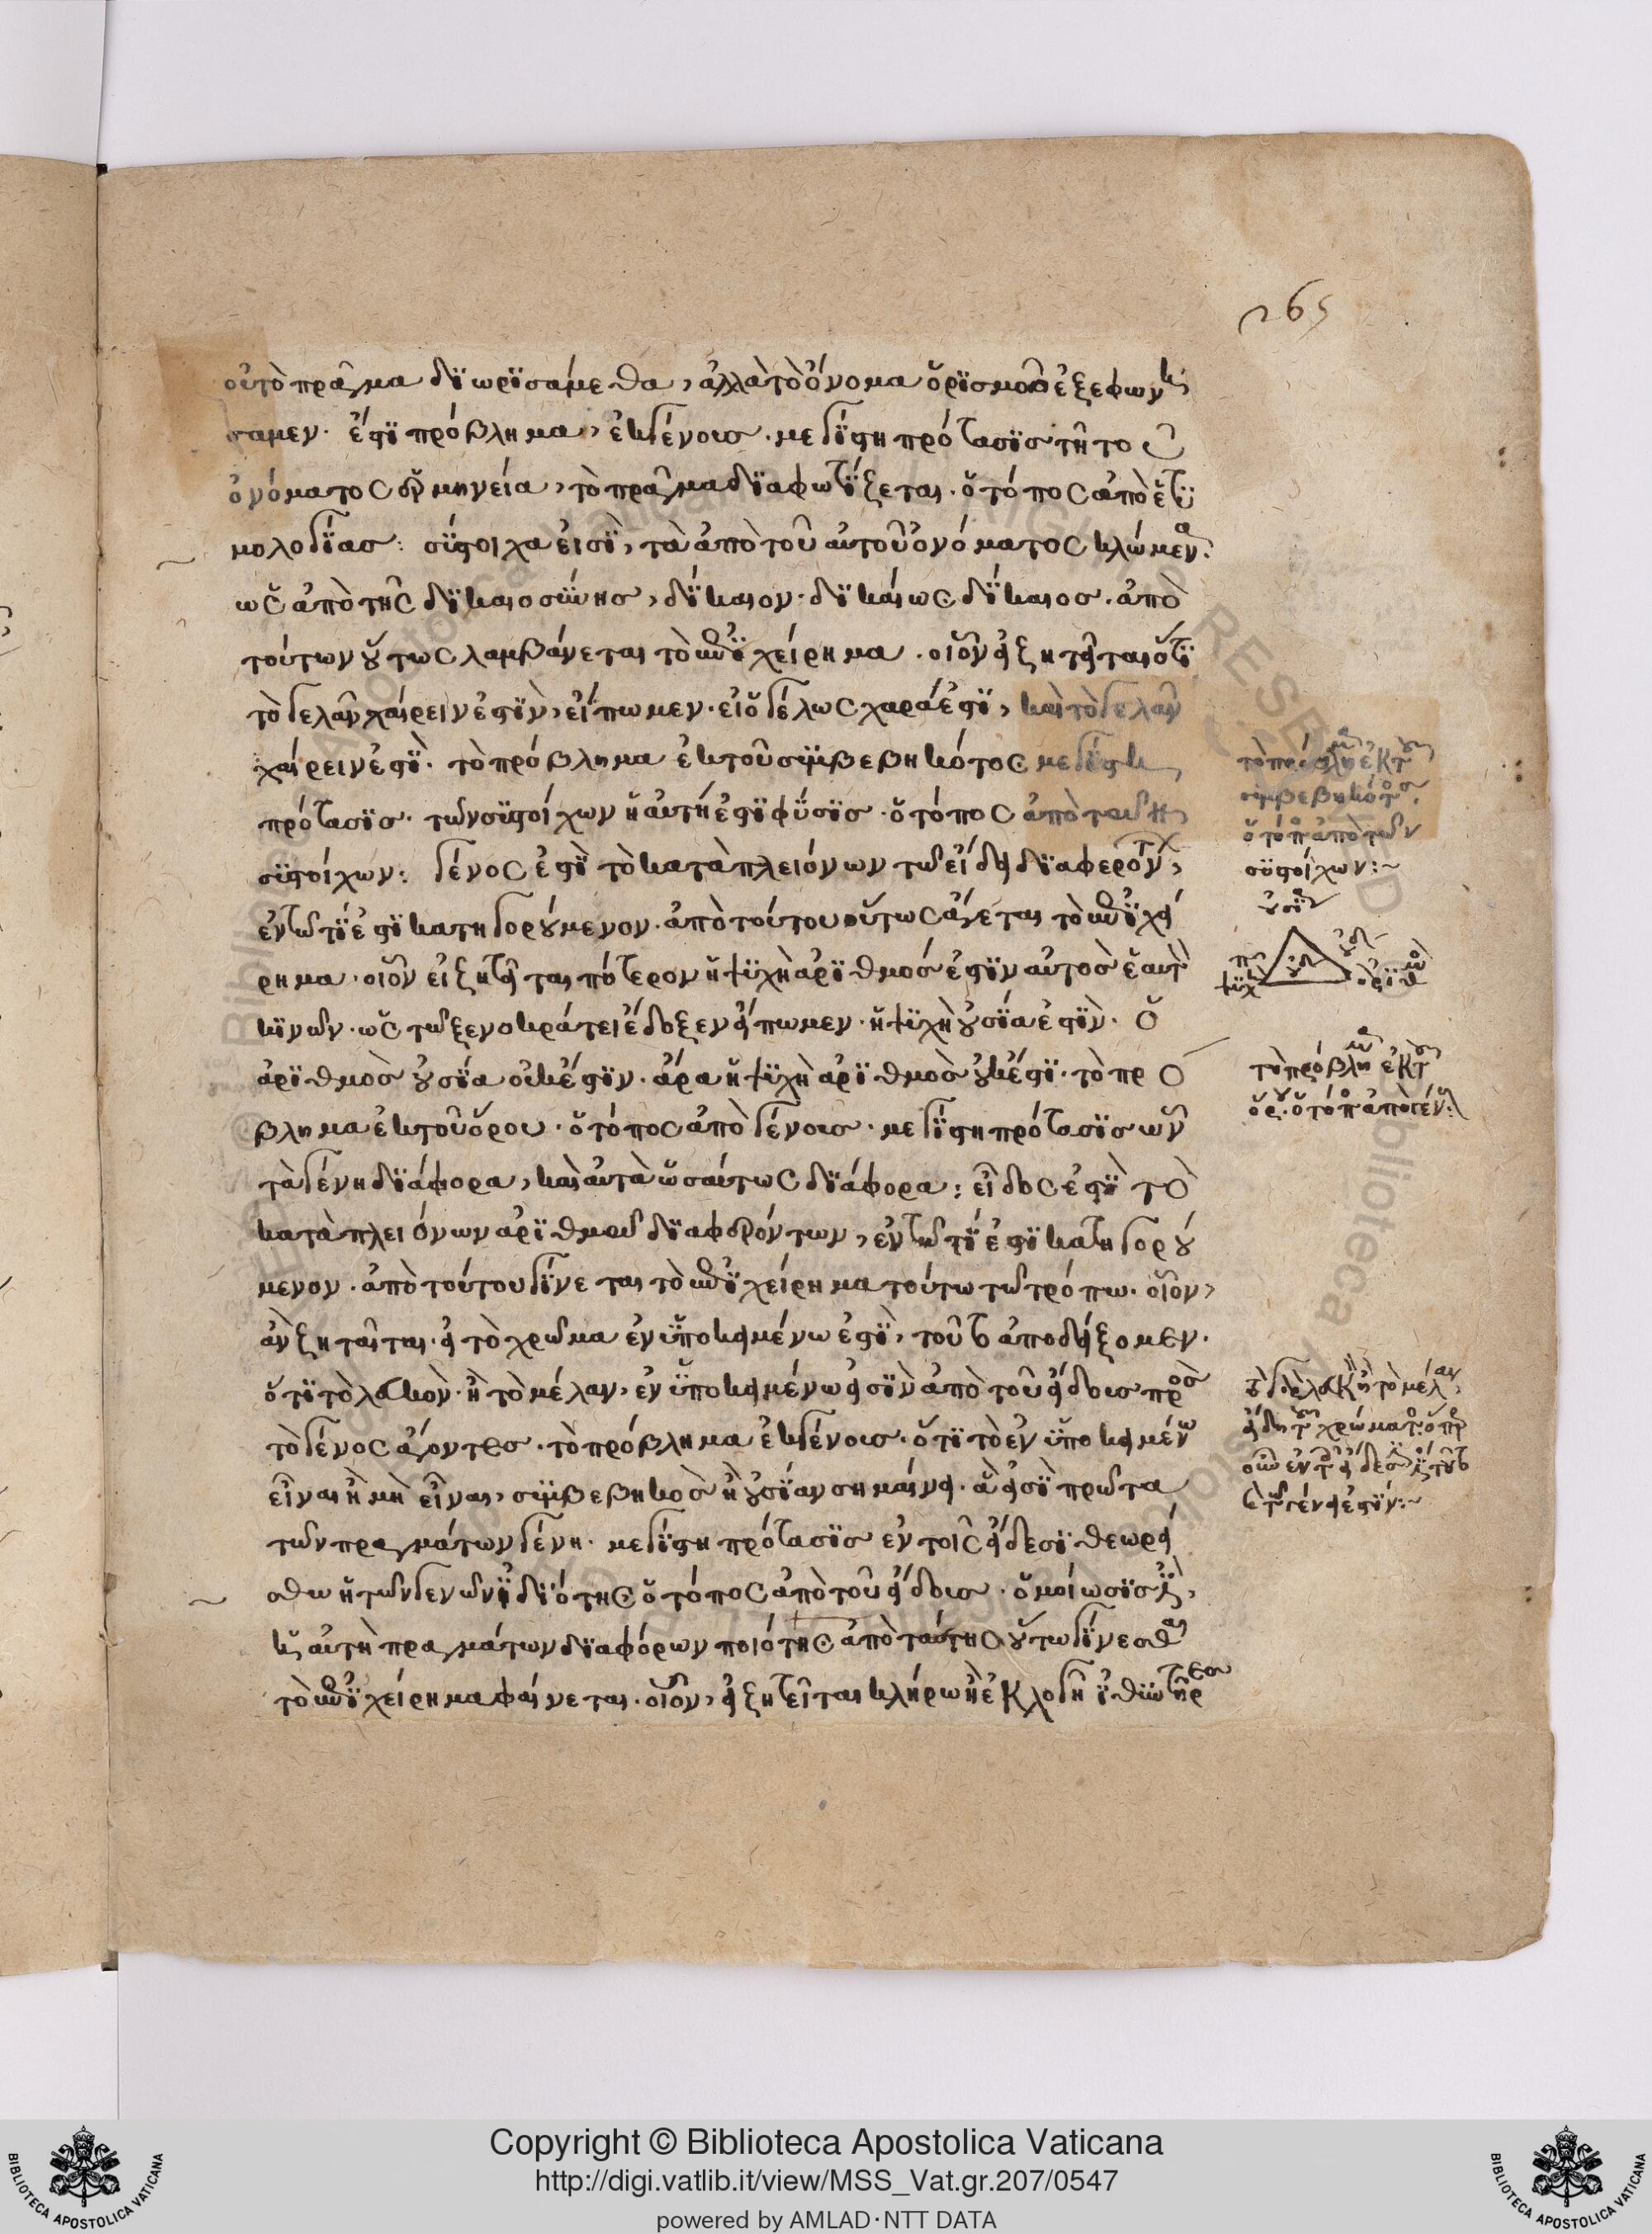 265
οὐ τὸ πρᾶγμα διωρισάμεθα, ἀλλὰ τὸ ὄνομα ὁρισμοῦ ἐξεφωνή
σαμεν. ἔστι πρόβλημα, ἐκ γένους. μεγίστη πρότασις τῆ τοῦ
ὀνόματος ἑρμηνεία, τὸ πρᾶγμα διαφωτίζεται. ὁ τόπος ἀπὸ ἐτυ
μολογίας: σύστοιχα εἰσὶ, τὰ ἀπὸ τοῦ αὐτοῦ ὀνόματος κλώμενα.
ὡς ἀπὸ τῆς δικαιοσύνης, δίκαιον. δικαίως δίκαιος. ἀπὸ
τούτων οὕτως λαμβάνεται τὸ ἐπιχείρημα. οἷον εἰ ζητεῖται ὅτι
τὸ γελᾶν χαίρειν ἐστὶν, εἴπωμεν. εἰ ὁ γέλως χαρά ἐστι, καὶ τὸ γελᾶν
χαίρειν ἐστὶ. τὸ πρόβλημα ἐκ τοῦ συμβεβηκότος μεγίστη
πρότασις. τῶν συστοίχων ἡ αὐτή ἐστι φύσις. ὁ τόπος ἀπὸ τῶν
συστοίχων: γένος ἐστὶ τὸ κατὰ πλειόνων τῶ εἴδει διαφερόντων,
ἐν τῶ τί ἐστι κατηγορούμενον. ἀπὸ τούτου οὕτως ἄγεται τὸ ἐπιχεί
ρημα. οἷον εἰ ζητεῖται πότερον ἡ ψυχὴ ἀριθμός ἐστιν αὐτὸς ἑαυτὸν
κινῶν. ὡς τῶ ξενοκράτει ἔδοξεν εἴπωμεν. ἡ ψυχὴ οὐσία ἐστὶν. ὁ
ἀριθμὸς οὐσία οὐκ ἔστιν. ἄρα ἡ ψυχὴ ἀριθμὸς οὐκ ἔστι. τὸ πρό
βλημα ἐκ τοῦ ὅρου. ὁ τόπος ἀπὸ γένους. μεγίστη πρότασις ὧν
τὰ γένη διάφορα, καὶ αὐτὰ ὡσαύτως διάφορα: εἶδος ἐστὶ τὸ
κατὰ πλειόνων ἀριθμῶ διαφερόντων, ἐν τῶ τί ἐστι κατηγορού
μενον. ἀπὸ τούτου γίνεται τὸ ἐπιχείρημα τούτω τῶ τρόπω. οἷον,
ἂν ζητῆται. εἰ τὸ χρῶμα ἐν ὑποκειμένω ἐστὶ, τοῦτο ἀποδείξομεν.
ὅτι τὸ λευκὸν. ἢ τὸ μέλαν, ἐν ὑποκειμένω εἰσὶν ἀπὸ τοῦ εἴδους πρὸς
τὸ γένος ἄγοντες. τὸ πρόβλημα ἐκ γένους. ὅτι τὸ ἐν ὑποκειμένω
εἶναι ἢ μὴ εἶναι, συμβεβηκὸς ἢ οὐσίαν σημαίνει. ἃ εἰσὶ πρῶτα
τῶν πραγμάτων γένη. μεγίστη πρότασις ἐν τοῖς εἴδεσι θεωρεί
σθω ἡ τῶν γενῶν ἰδιότης ὁ τόπος ἀπὸ τοῦ εἴδους. ὁμοίωσις ἐστὶ,
ἡ αὐτὴ πραγμάτων διαφόρων ποιότης ἀπὸ ταύτης οὕτω γίνεσθαι
τὸ ἐπιχείρημα φαίνεται. οἷον, εἰ ζητεῖται κλήρω ἢ ἐκλογῆ ἰθυντῆρες
τὸ πρόβλημα ἐκ τοῦ
συμβεβηκότος.
ὁ τόπος ἀπὸ τῶν
συστοίχων:~
οὐσία
ψυχὴ
ἀριθμὸς
τὸ πρόβλημα ἐκ τοῦ
ὅρου. ὁ τόπος ἀπὸ γένους:
τὸ λευκὸν ἢ τὸ μέλαν,
εἴδη τοῦ χρώματος. ὅπερ
οὖν ἐν τοῖς εἴδεσιν ἐστὶ τοῦτο
καὶ τῶ γένει ἐστίν:~
Copyright © Biblioteca Apostolica Vaticana
http://digi.vatlib.it/view/MSS_Vat.gr.207/0547
powered by AMLAD·NTT DATA
BIBLIOTECA APOSTOLICA VATICANA
BIBLIOTECA APOSTOLICA VATICANA